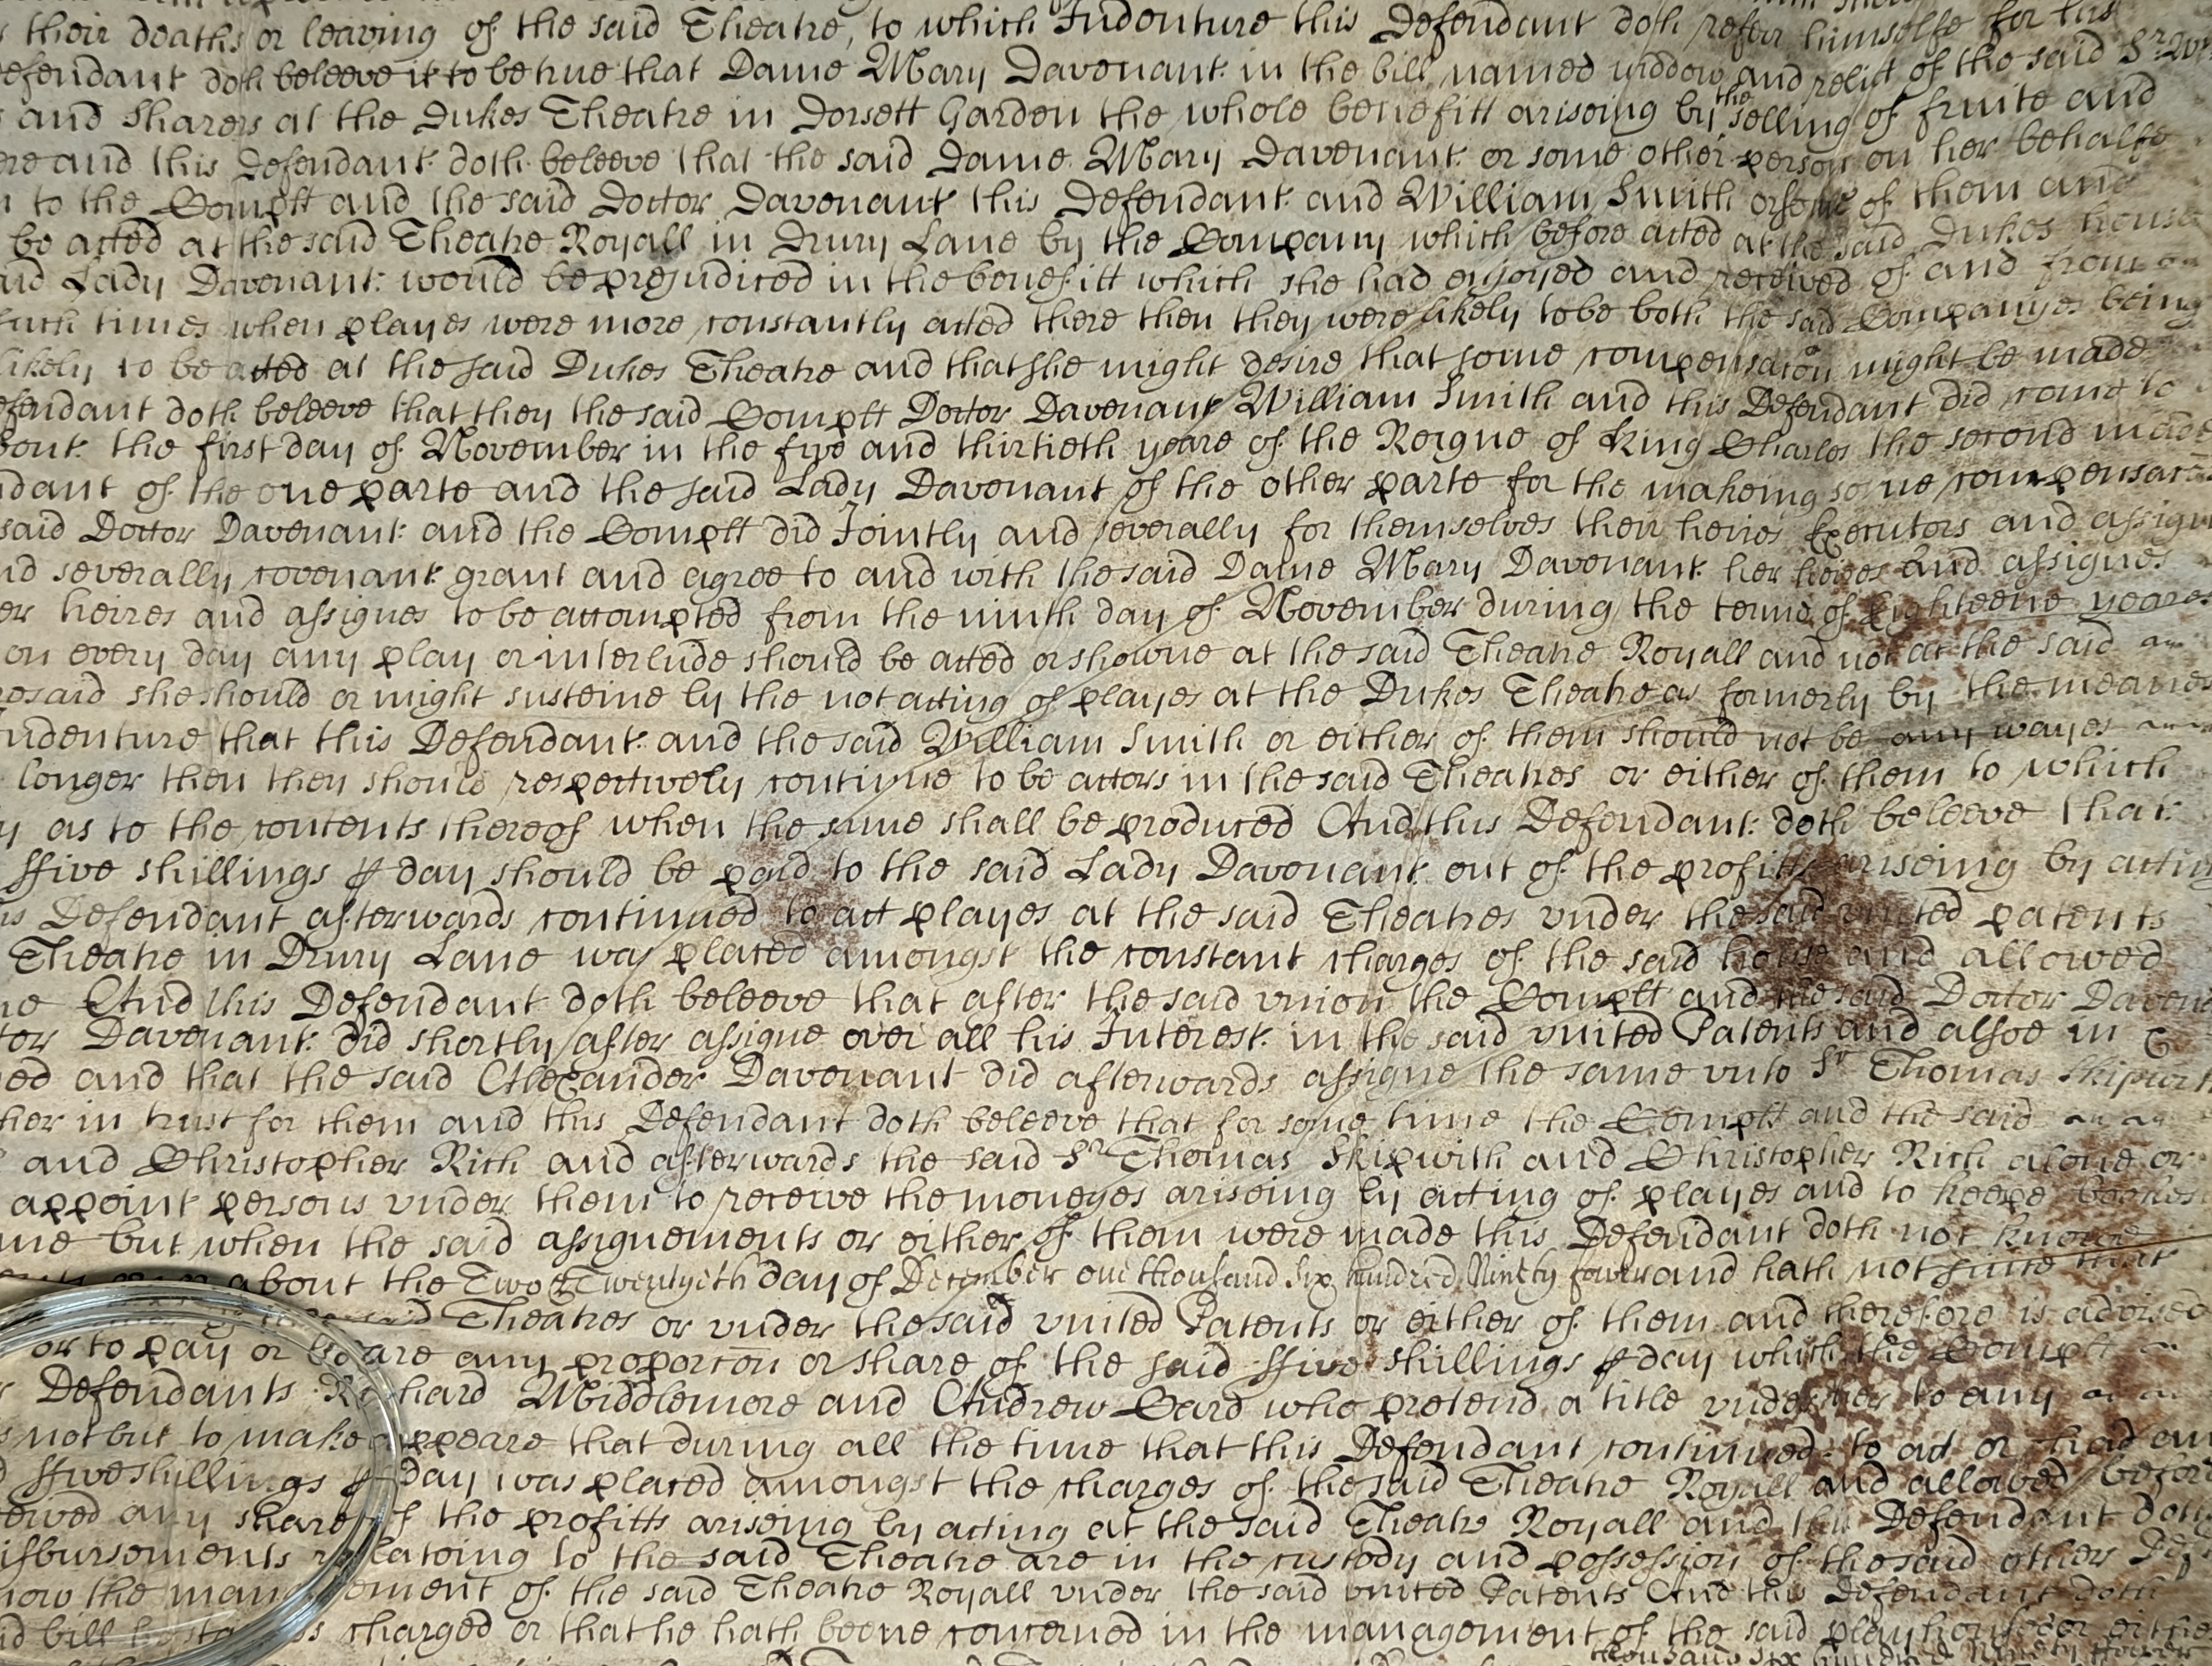 their deaths or leaving of the said Theatre, to which Indenture this Defendant doth refer himselfe for his
efendant doth beleeve it to be true that Dame Mary Davenant in the bill named widdow and relict of the said Sr W
and Sharers at the Dukes Theatre in Dorsett Garden the whole benefitt ariseing by the selling of fruite and
ere and this Defendant doth beleeve that the said Dame Mary Davenant or some other person on her behalfe
to the Complt and the said Doctor Davenant this Defendant and William Smith or some of them and
be acted at the said Theatre Royall in Drury Lane by the Company which before acted at the said Dukes house
aid Lady Davenant would be prejudiced in the benefitt which she had enjoyed and received of and from
such times when playes were more constantly acted there then they were likely to be both the said Companyes being
likely to be acted at the said Dukes Theatre and that she might desire that some compensacon might be made
efendant doth beleeve that they the said Complt Doctor Davenant William Smith and this Defendant did come to
bout the first day of November in the five and thirtieth yeare of the Reigne of King Charles the second made
dant of the one parte and the said Lady Davenant of the other parte for the makeing some compensac
said Doctor Davenant and the Complt did Jointly and severally for themselves their heires Executors and assign
nd severally covenant grant and agree to and with the said Dame Mary Davenant her heires and assignes
er heires and assignes to be accompted from the ninth day of November during the terme of Eighteene yeares
on every day any play or interlude should be acted or showne at the said Theatre Royall and not at the said
resaid she should or might susteine by the not acting of playes at the Dukes Theatre as formerly by the meanes
ndenture that this Defendant and the said William Smith or either of them should not be any wayes
longer then they should respectively continue to be actors in the said Theatres or either of them to which
y as to the contents thereof when the same shall be produced And this Defendant doth beleeve that
ffive shillings p day should be paid to the said Lady Davenant out of the profitts ariseing by acting
is Defendant afterwards continued to act playes at the said Theatres vnder the said vnited patents
Theatre in Drury Lane was placed amongst the constant charges of the said house and allowed
ne And this Defendant doth beleeve that after the said vnion the Complt and the said Doctor Daven
tor Davenant did shortly after assigne over all his Interest in the said vnited Patents and alsoe in
ed and that the said Alexander Davenant did afterwards assigne the same vnto Sr Thomas Skipwit
her in trust for them and this Defendant doth beleeve that for some time the Complt and the said
and Christopher Rich and afterwards the said Sr Thomas Skipwith and Christopher Rich alone or
appoint persons vnder them to receive the moneyes ariseing by acting of playes and to keepe bookes
me but when the said assignements or either of them were made this Defendant doth not knowe
about the Two & Twentyeth day of December one thousand six hundred Ninety fower and hath not since that
said Theatres or vnder the said vnited Patents or either of them and therefore is advised
or to pay or beare any proporcon or share of the said ffive shillings p day which the Complt
Defendants Richard Middlemore and Andrew Card who pretend a title vnder her to any
s not but to make appeare that during all the time that this Defendant continued to act or had an
ffive shillings p day was placed amongst the charges of the said Theatre Royall and allowed befor
eived any share of the profitts ariseing by acting at the said Theatre Royall and this Defendant doth
isbursements relateing to the said Theatre are in the custody and possession of the said other
now the management of the said Theatre Royall vnder the said vnited Patents And this Defendant doth
id bill charged or that he hath beene concerned in the management of the said playhouse or either
thousand six hundred Ninety ffower